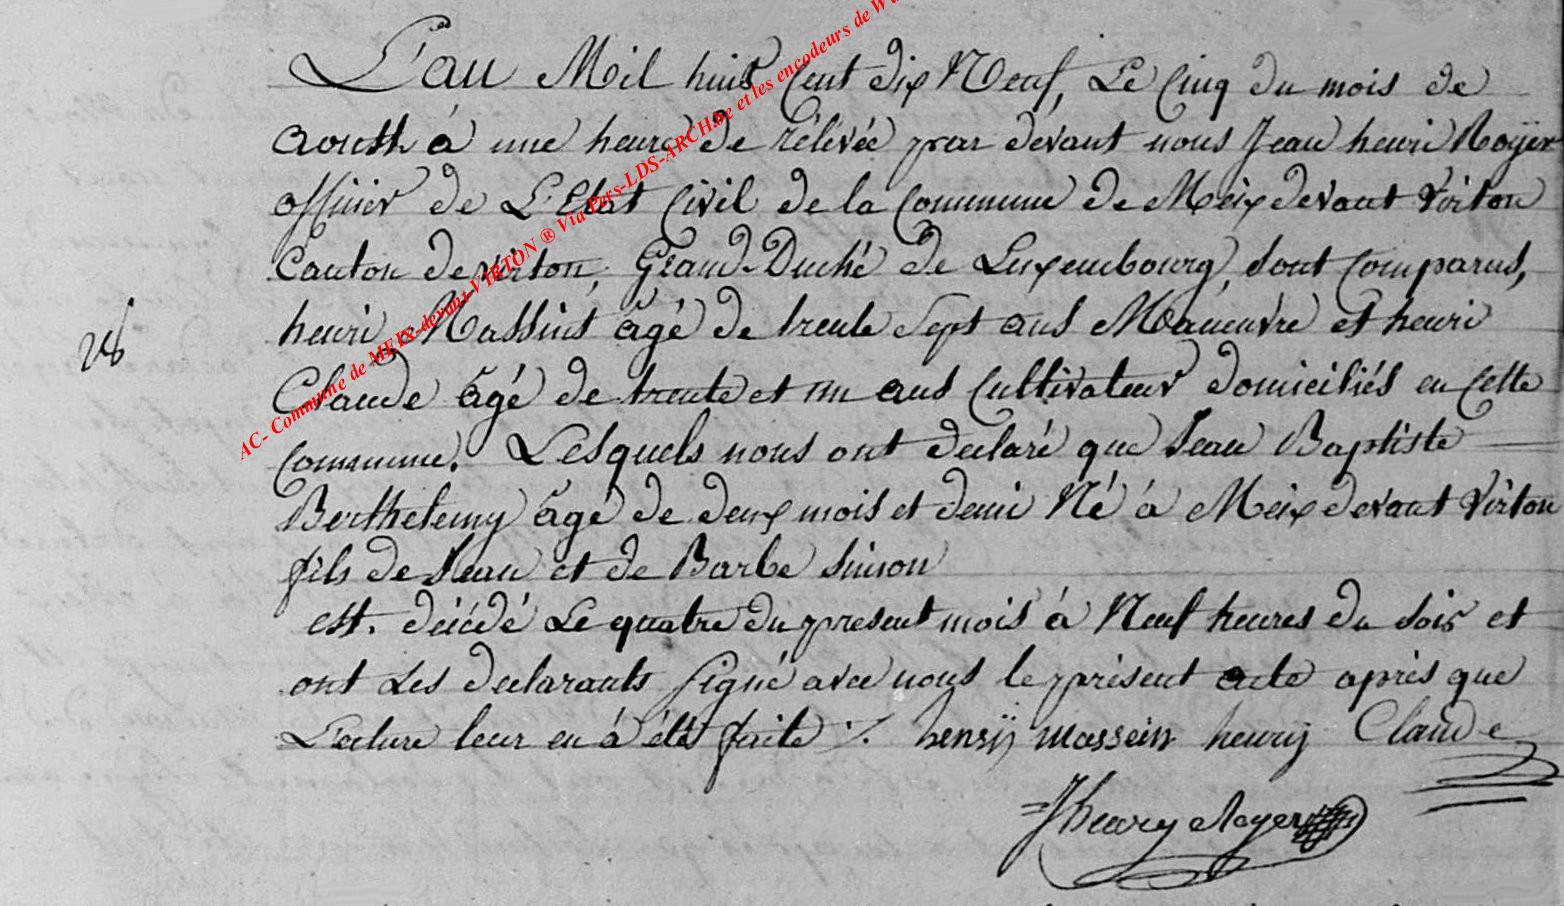 L'an Mil huit Cent dix Neuf, Le Cinq du mois de
aoust à une heure de rélévée par devant nous Jean henri Royer
officier de L'Etat Civil de la Commune de Meix devant Virton
Canton de Virton, Grand-Duché de Luxembourg, sont Comparus,
henri Massint âgé de trente Sept ans Maneuvre et henri
28
Claude âgé de trente et un ans Cultivateur domiciliés en Cette
Commune. Lesquels nous ont declaré que Jean Baptiste
Berthelemy âgé de deux mois et demi Né à Meix devant Virton
fils de Jean et de Barbe Simon
est. décédé Le quatre du present mois à Neuf heures du Soir et
ont Les declarants Signé avec nous le présent acte après que
Lecture leur en à été faite ./. henry massein henry Claude
JhenryRoyer
AC- Commune de MEIX-devant-VIRTON ® Via Pers-LDS-ARCH.be et les encodeurs de